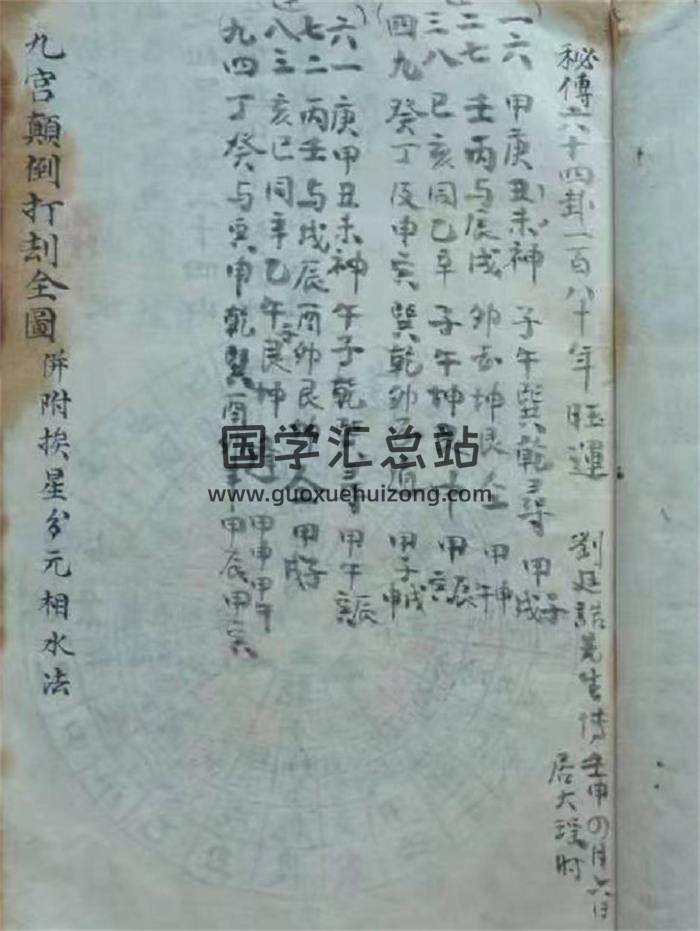 秘傳六十四卦一百八十年旺運
劉廷誥先生傳壬申四月六日
居大
一六 甲庚丑未神 子午巽乾尋 甲子戌
二七 壬丙与辰戌 卯酉坤艮全 甲申午
三八 巳亥同乙辛 子午坤艮 甲辰寅
四九 癸丁及申寅 巽乾卯酉 甲子戌申
六一 庚甲丑未神 午子乾巽尋 甲午辰寅
七二 丙壬与戌辰 酉卯艮 全 甲子戌
八三 亥巳同辛乙 午子艮坤 甲申甲午
九四 丁癸与寅申 乾巽酉 甲辰甲寅
九宮顛倒打刼全圖 併附挨星分元相水法
国学汇总站
www.guoxuehuizong.com